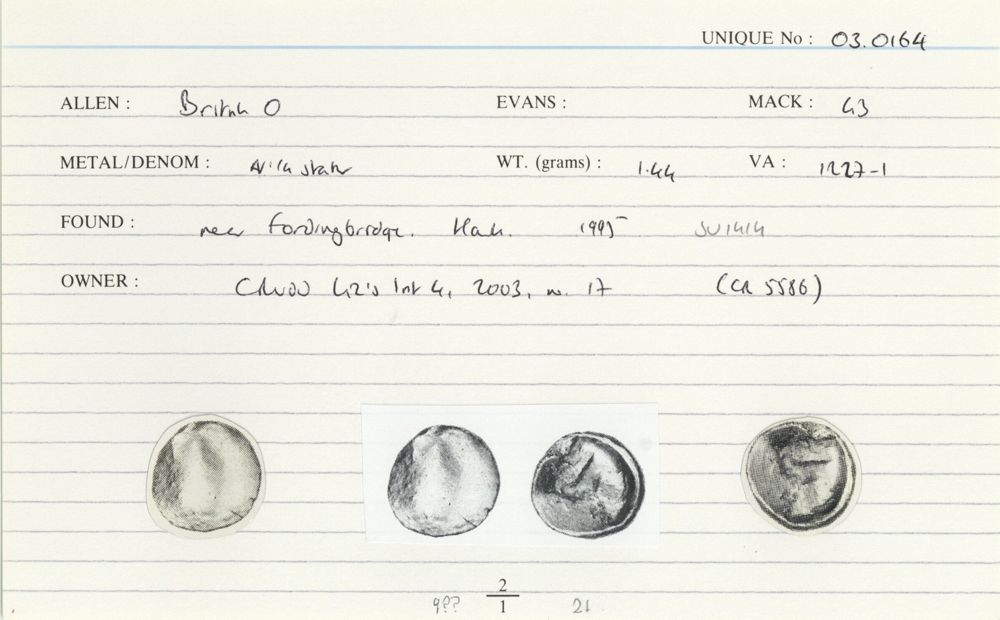 UNIQUE No : 03.0164
ALLEN : British O EVANS : MACK : 43
METAL/DENOM : AV ¼ stater WT. (grams) : 1.44 VA : 1227-1
FOUND : near Fordingbridge. Hants. 1995 SU1414
OWNER : 2003, no. 17 (CR 5586)
2
9?? 1 21